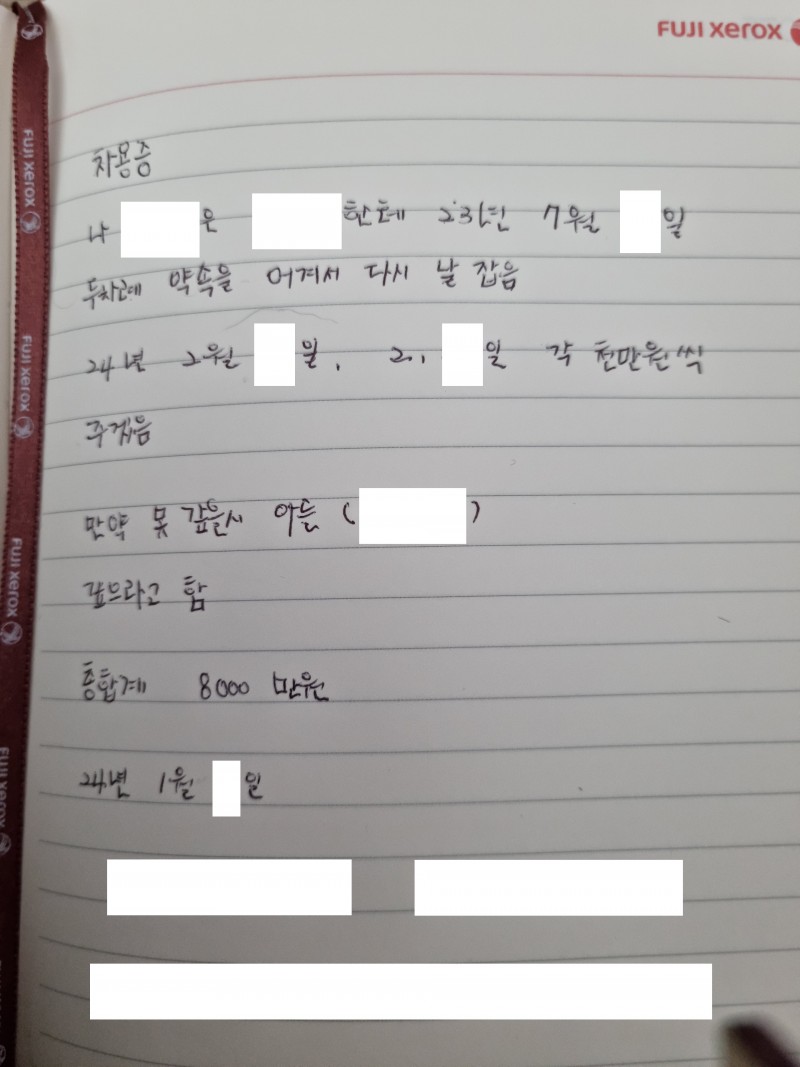 FUJI xerox
FUJI xerox
FUJI xerox
FUJI xerox
FUJI xerox
차용증
나 은 한테 23년 7월 일
두차례 약속을 어겨서 다시 날 잡음
24년 2월 일, 2, 일 각 천만원씩
주겠음
만약 못 갚을시 아들 ( )
갚으라고 함
총합계 8000 만원
24년 1월 일